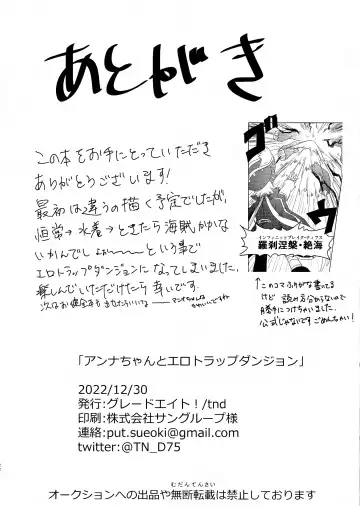 あとがき
この本をお手にとっていただき
ありがとうございます!
最初は違うの描く予定でしたが、
恒常→水着→ときたら海賊かかな
いかんでしょーーーという事で
エロトラップダンジョンになってしまいました。
楽しんでいただけたら幸いです。
ゴゴ
インフィニットブレイク・ティアス
羅刹涅槃・絶海
↑このコマふりがな書いてる
けど 読み方分からないので
勝手につけちゃいました。
公式じゃないです ごめんちゃい!
「アンナちゃんとエロトラップダンジョン」
2022/12/30
発行:グレードエイト!/tnd
印刷:株式会社サングループ様
連絡:put.sueoki@gmail.com
twitter:@TN_D75
むだんてんさい
オークションへの出品や無断転載は禁止しております